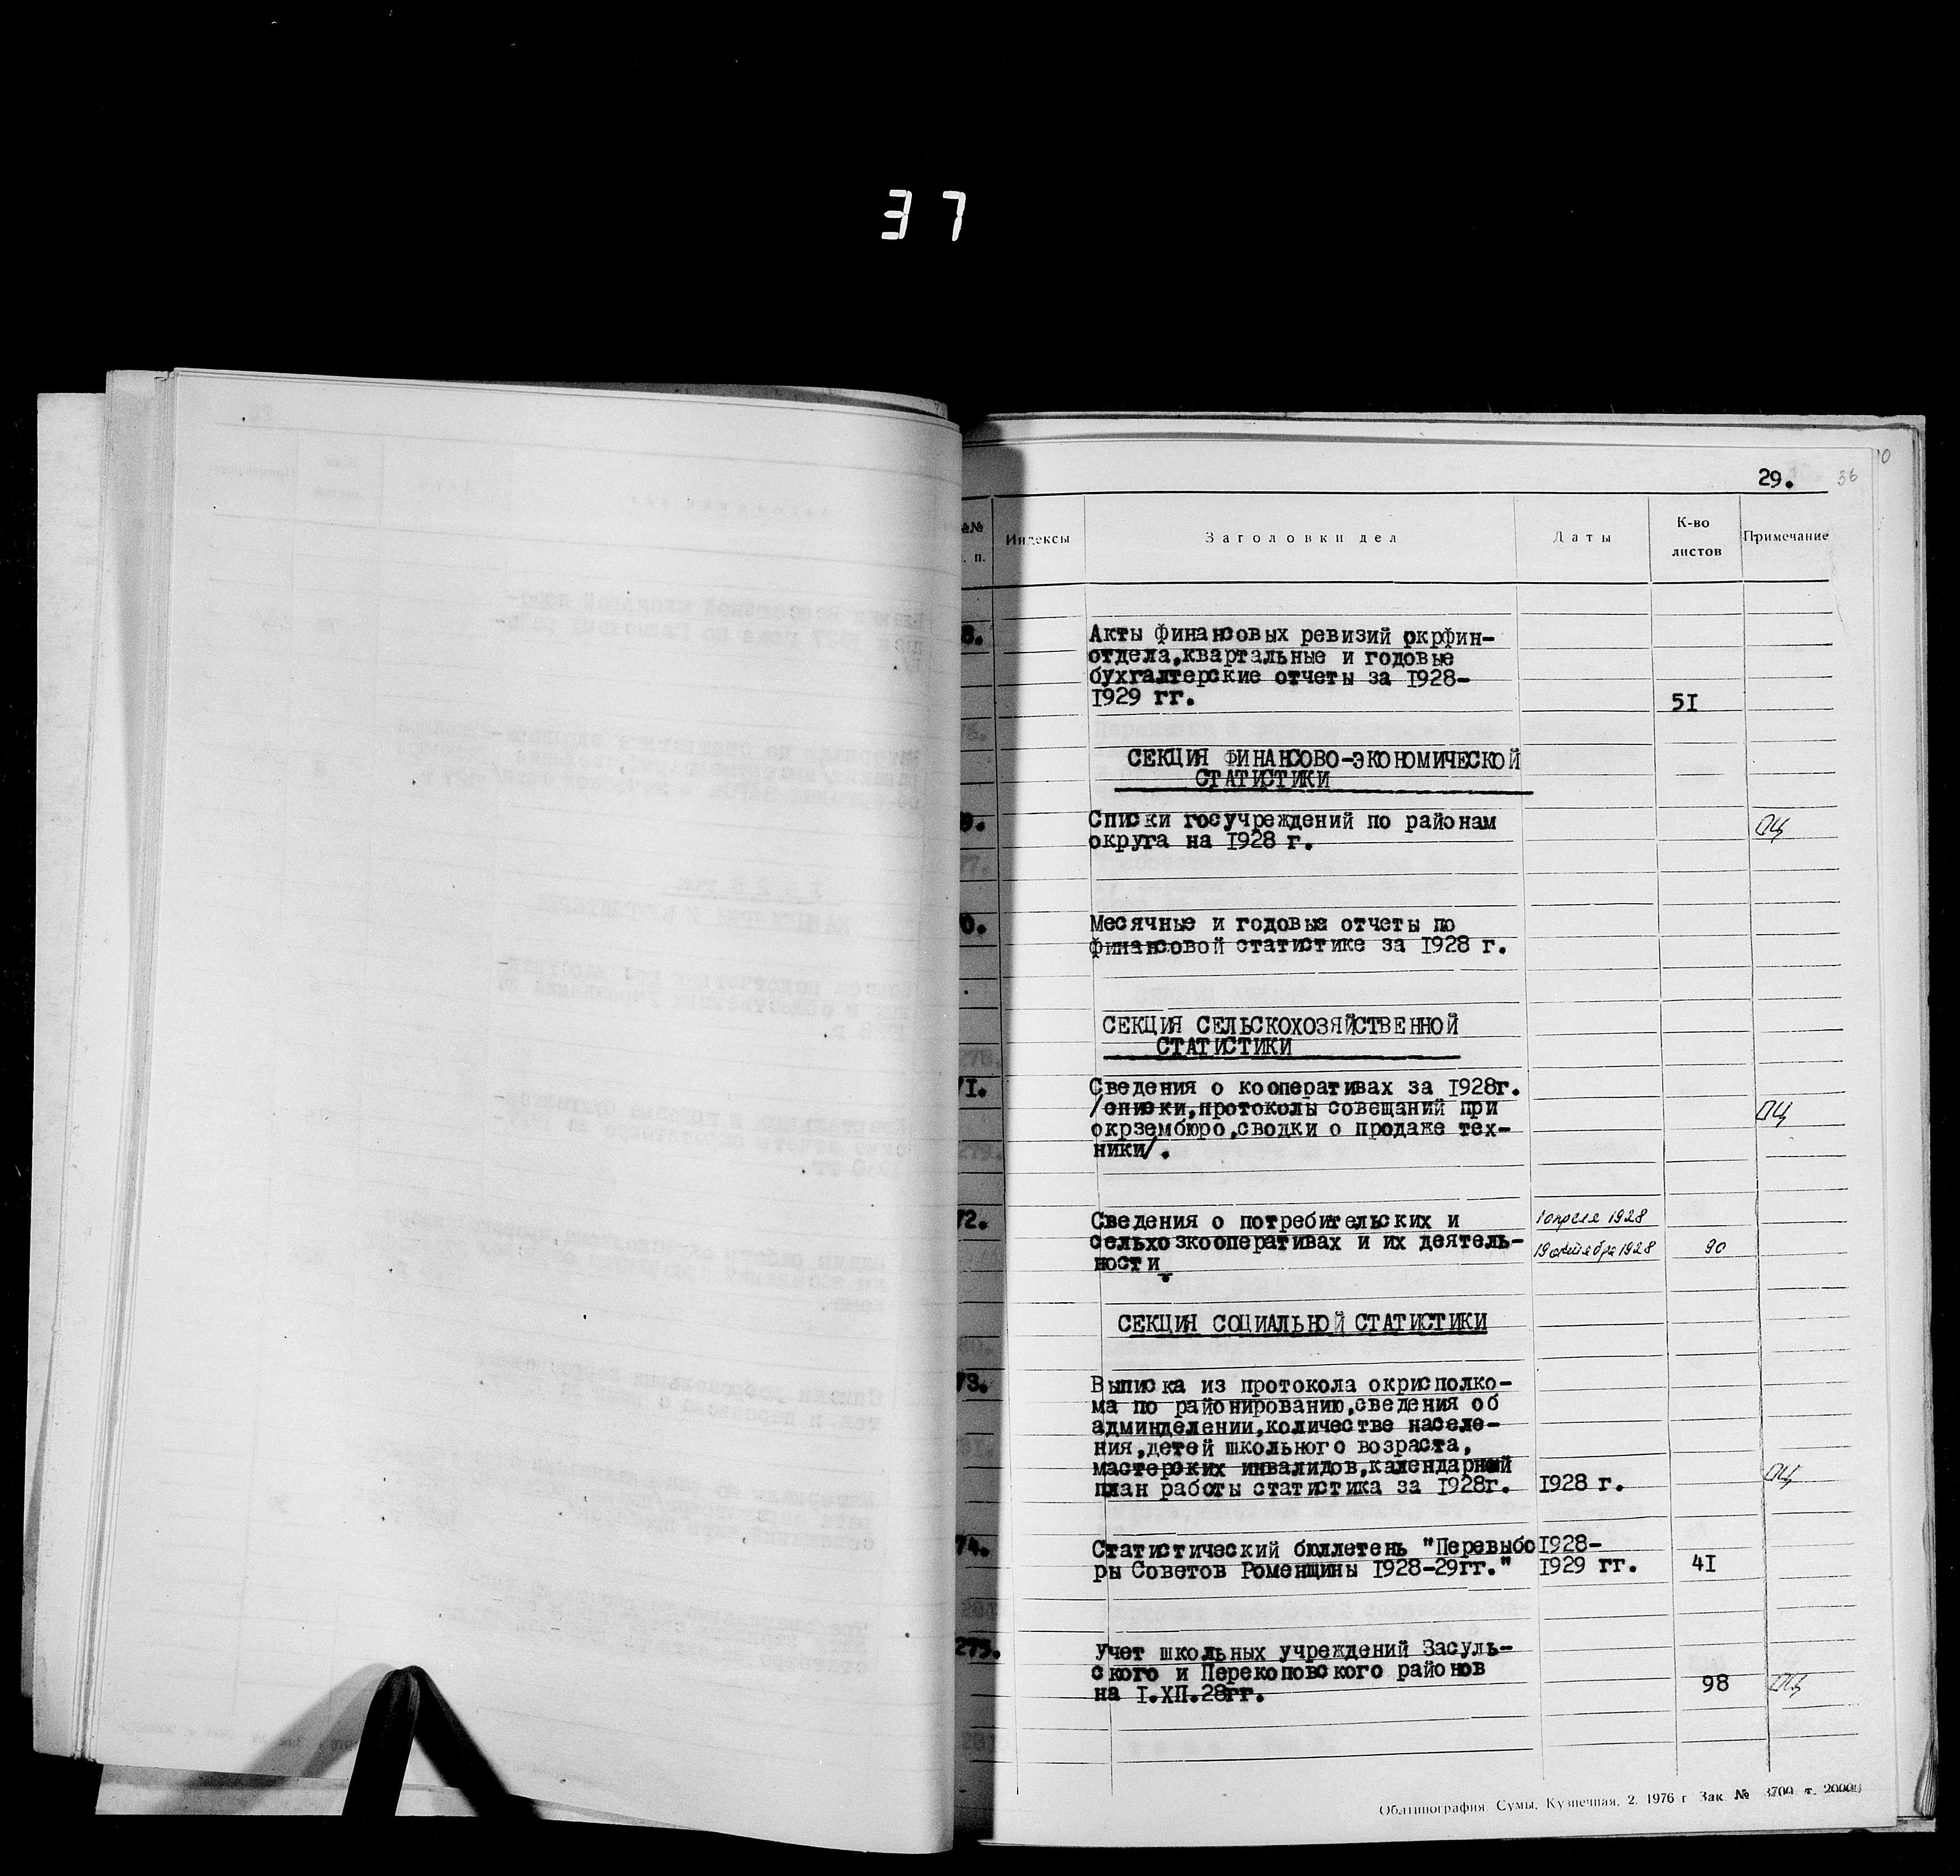 37
29.
36
№№
п.
Индексы
Заголовки дел
Даты
К-во
листов
Примечание
8.
Акты финансовых ревизий окрфин-
отдела,квартальные и годовые
бухгалтерские отчеты за I928-
I929 гг.
5I
СЕКЦИЯ ФИНАНСОВО-ЭКОНОМИЧЕСКОЙ
СТАТИСТИКИ
9.
Списки госучреждений по районам
округа на I928 г.
ОЦ
0.
Месячные и годовые отчеты по
финансовой статистике за I928 г.
СЕКЦИЯ СЕЛЬСКОХОЗЯЙСТВЕННОЙ
СТАТИСТИКИ
7I.
Сведения о кооперативах за I928г.
/списки,протоколы совещаний при
окрзембюро,сводки о продаже тех-
ники/.
ОЦ
72.
Сведения о потребительских и
сельхозкооперативах и их деятель-
ности
1 апреля 1928
19 октября 1928
90
СЕКЦИЯ СОЦИАЛЬНОЙ СТАТИСТИКИ
73.
Выписка из протокола окрисполко-
ма по районированию,сведения об
админделении,количестве населе-
ния,детей школьного возраста,
мастерских инвалидов,календарный
план работы статистика за I928г.
I928 г.
ОЦ
74.
Статистический бюллетень "Перевыбо
ры Советов Роменщины I928-29гг."
I928-
I929 гг.
4I
275.
Учет школьных учреждений Засуль-
ского и Перекоповского районов
на I.XП.28гг.
98
ОЦ
Облтипография Сумы, Кузнечная, 2, 1976 г Зак. № 3700 т. 20000